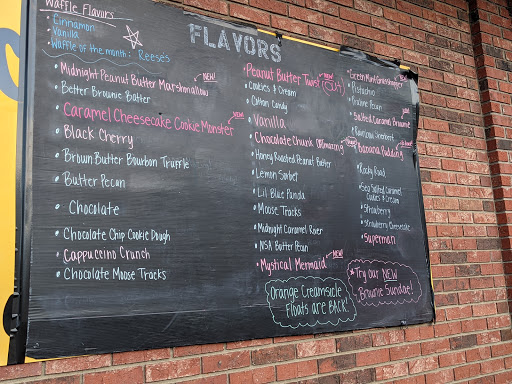 Waffle Flavors
• Cinnamon
• Vanilla
• Waffle of the month: Reeses
FLAVORS
• Midnight Peanut Butter Marshmallow NEW!
• Better Brownie Batter
• Caramel Cheesecake Cookie Monster NEW
• Black Cherry
• Brown Butter Bourbon Truffle
• Butter Pecan
• Chocolate
• Chocolate Chip Cookie Dough
• Cappuccino Crunch
• Chocolate Moose Tracks
• Peanut Butter Twist NEW
• Cookies & Cream
• Cotton Candy
• Vanilla
• Chocolate Chunk
• Honey Roasted Peanut Butter
• Lemon Sorbet
• Lil Blue Panda
• Moose Tracks
• Midnight Caramel River
• NSA Butter Pecan
• Mystical Mermaid NEW!
• Green Mint Grasshopper
• Pistachio
• Praline Pecan
• Salted Caramel
• Rainbow Sherbert
• Banana Pudding
• Rocky Road
• Sea Salted Caramel
Cookies & Cream
• Strawberry
• Strawberry Cheesecake
• Superman
Orange Creamsicle
Floats are BACK!
Try Our NEW
Brownie Sundae!